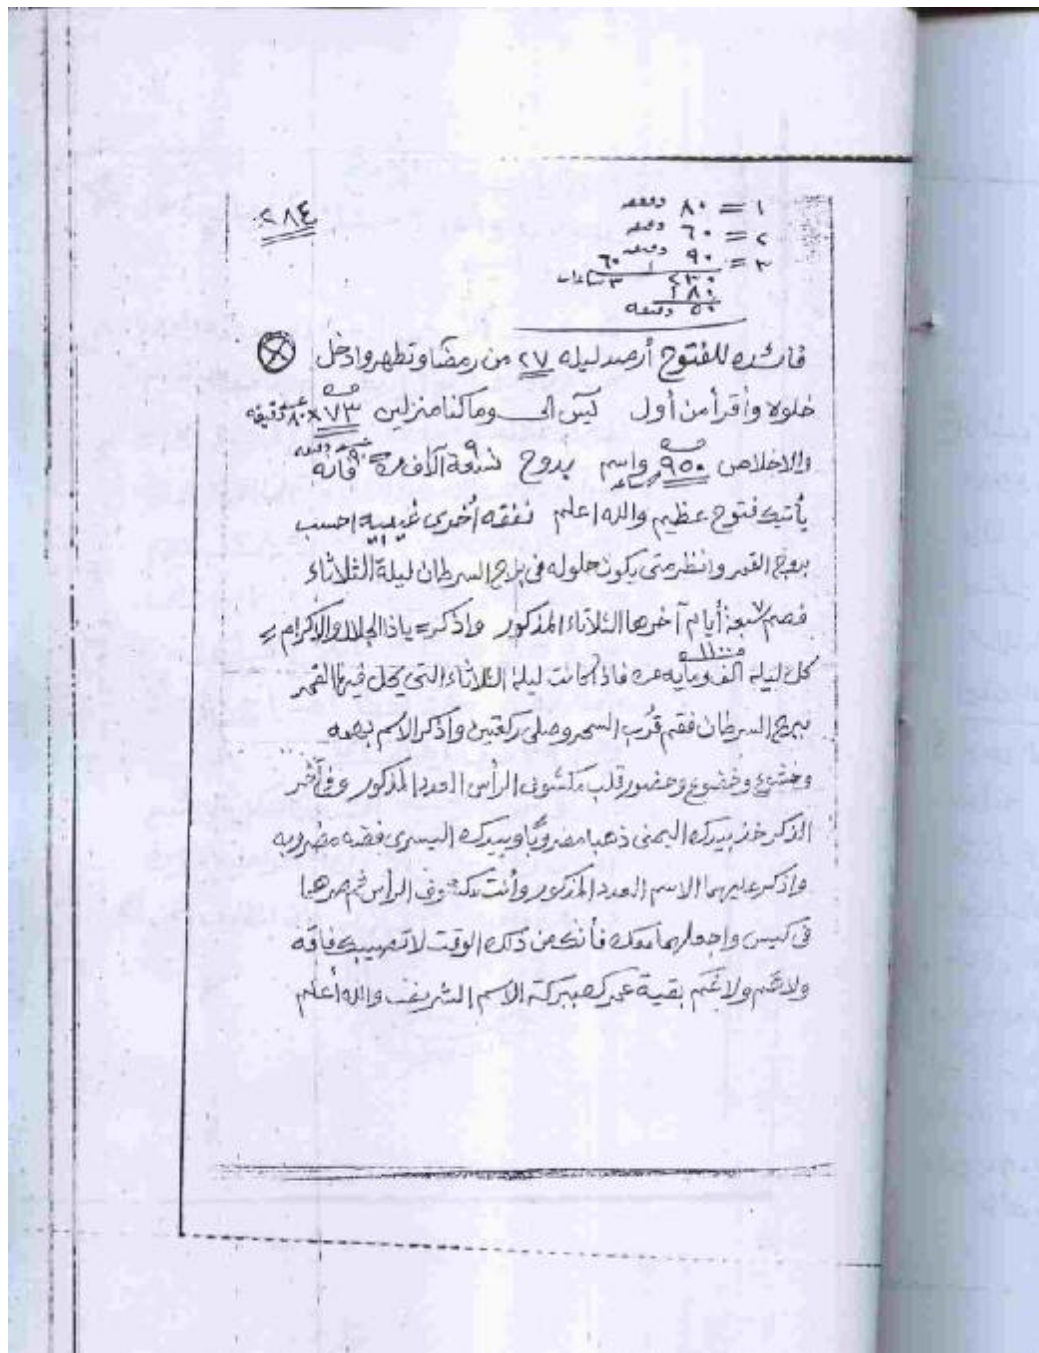 ٢٨٤
١ = ٨٠ دقيقه
٢ = ٦٠ دقيقه
٣ = ٩٠ دقيقه
٢٣٠ ٦٠
١٨٠ ٣ ساعات
٥٠ دقيقه
فائده للفتوح أرصد ليله ٢٧ من رمضا وتطهر وادخل
خلوه وأقرأ من أول يٓس الى وما كنا منزلين ٧٣ × ٨٠ دقيقه
والاخلاص ٩٥٠ واسم بدوح تسعة آلاف مره ٩٠ دقيقه فانه
يأتيك فتوح عظيم والله اعلم نفقه أخرى غيبيه احسب
بروج القمر وانظر متى يكون حلوله فى برج السرطان ليلة الثلاثاء
فصم ٧ سبعة أيام آخرها الثلاثاء المذكور واذكر = ياذا الجلال والاكرام =
كل ليلة الف ومايه مره ١١٠٠ فاذا كانت ليلة الثلاثاء التى يحل فيها القمر
ببرج السرطان فقم قرب السحر وصلى ركعتين واذكر الاسم بهمه
وخشوع وخضوع وحضور قلب مكشوف الرأس العدد المذكور وفى آخر
الذكر خذ بيدك اليمنى ذهبا مضروبًا وبيدك اليسرى فضه مضروبه
واذكر عليهما الاسم العدد المذكور وأنت مكشوف الرأس ثم صرهما
فى كيس واجعلهما معك فأنك من ذلك الوقت لا تصيبك فاقه
ولا هَم ولا غَم بقية عمرك ببركة الاسم الشريف والله أعلم